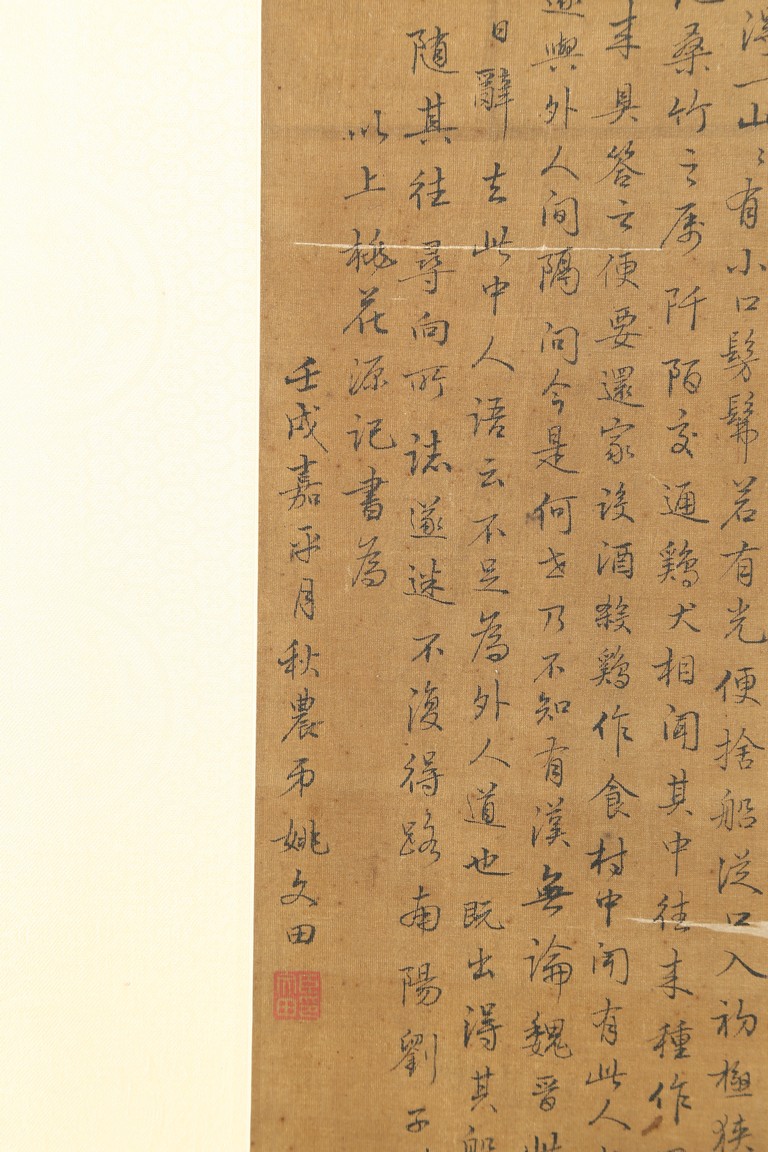 一山〻有小口髣髴若有光便捨船從口入初極狹
桑竹之属阡陌交通鷄犬相聞其中往来種作
来具答之便要還家設酒殺鷄作食村中聞有此人
遂與外人間隔問今是何世乃不知有漢無論魏晋此
日辭去此中人語云不足為外人道也既出得其船
随其往尋向所誌遂迷不復得路南陽劉子
以上桃花源記書為
壬戌嘉平月秋農弟姚文田